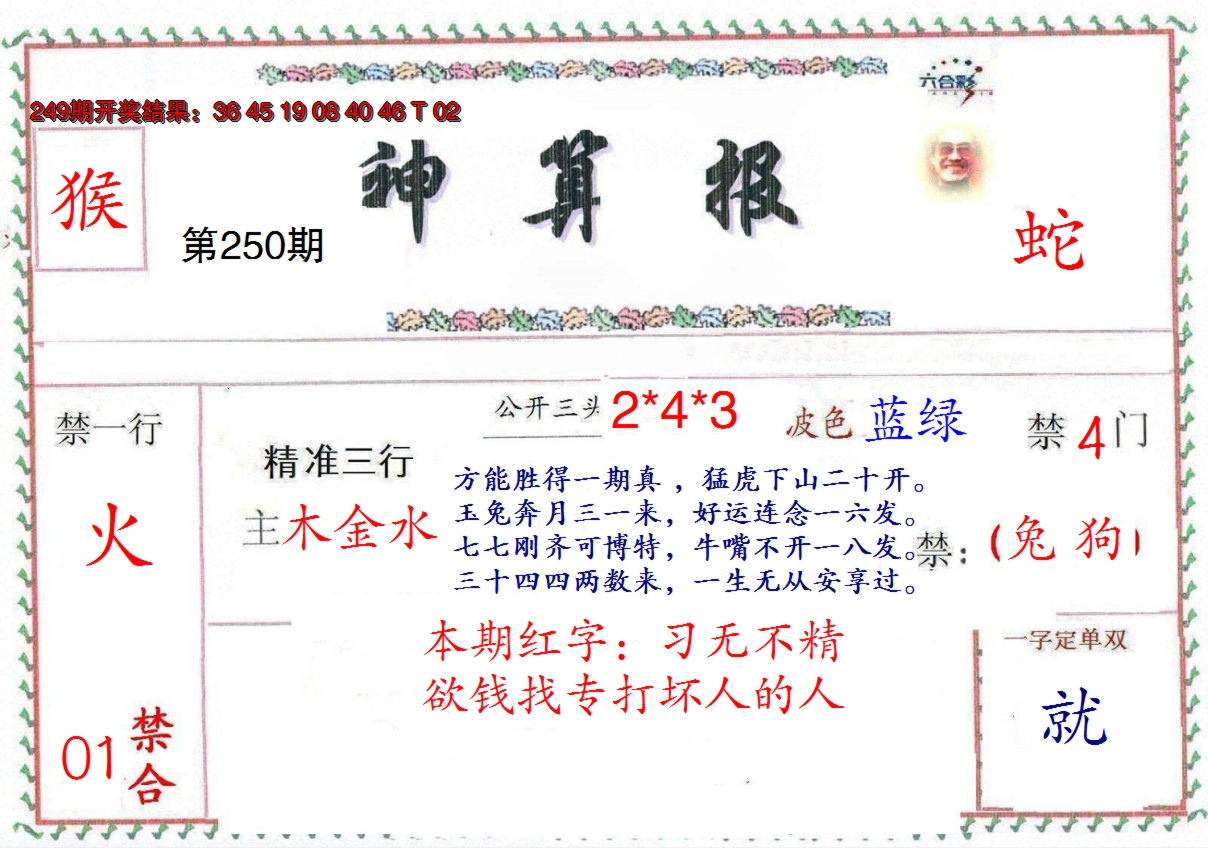 六合彩
249期开奖结果：36 45 19 08 40 46 T 02
猴
神算报
第250期
蛇
禁一行
火
01 禁合
公开三头 2*4*3
波色 蓝绿
禁 4 门
精准三行
主木金水
方能胜得一期真，猛虎下山二十开。
玉兔奔月三一来，好运连念一六发。
七七刚齐可博特，牛嘴不开一八发。
三十四四两数来，一生无从安享过。
禁：（兔 狗）
本期红字：习无不精
欲钱找专打坏人的人
一字定单双
就